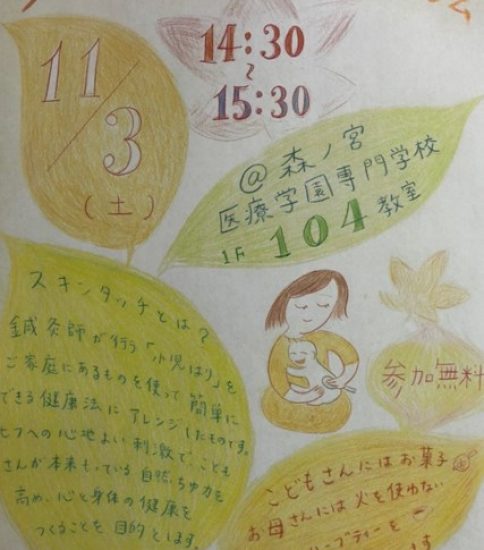 11/3
(土)
14:30
~
15:30
@森ノ宮
医療学園専門学校
1F 104 教室
スキンタッチとは?
鍼灸師が行う「小児はり」を
ご家庭にあるものを使って簡単に
できる健康法にアレンジしたものです。
ヒフへの心地よい刺激で、こども
さんが本来もっている自然ちゆ力を
高め、心と身体の健康を
つくることを目的とします。
参加無料
こどもさんにはお菓子
お母さんには火を使わない
ハーブティーを
ます